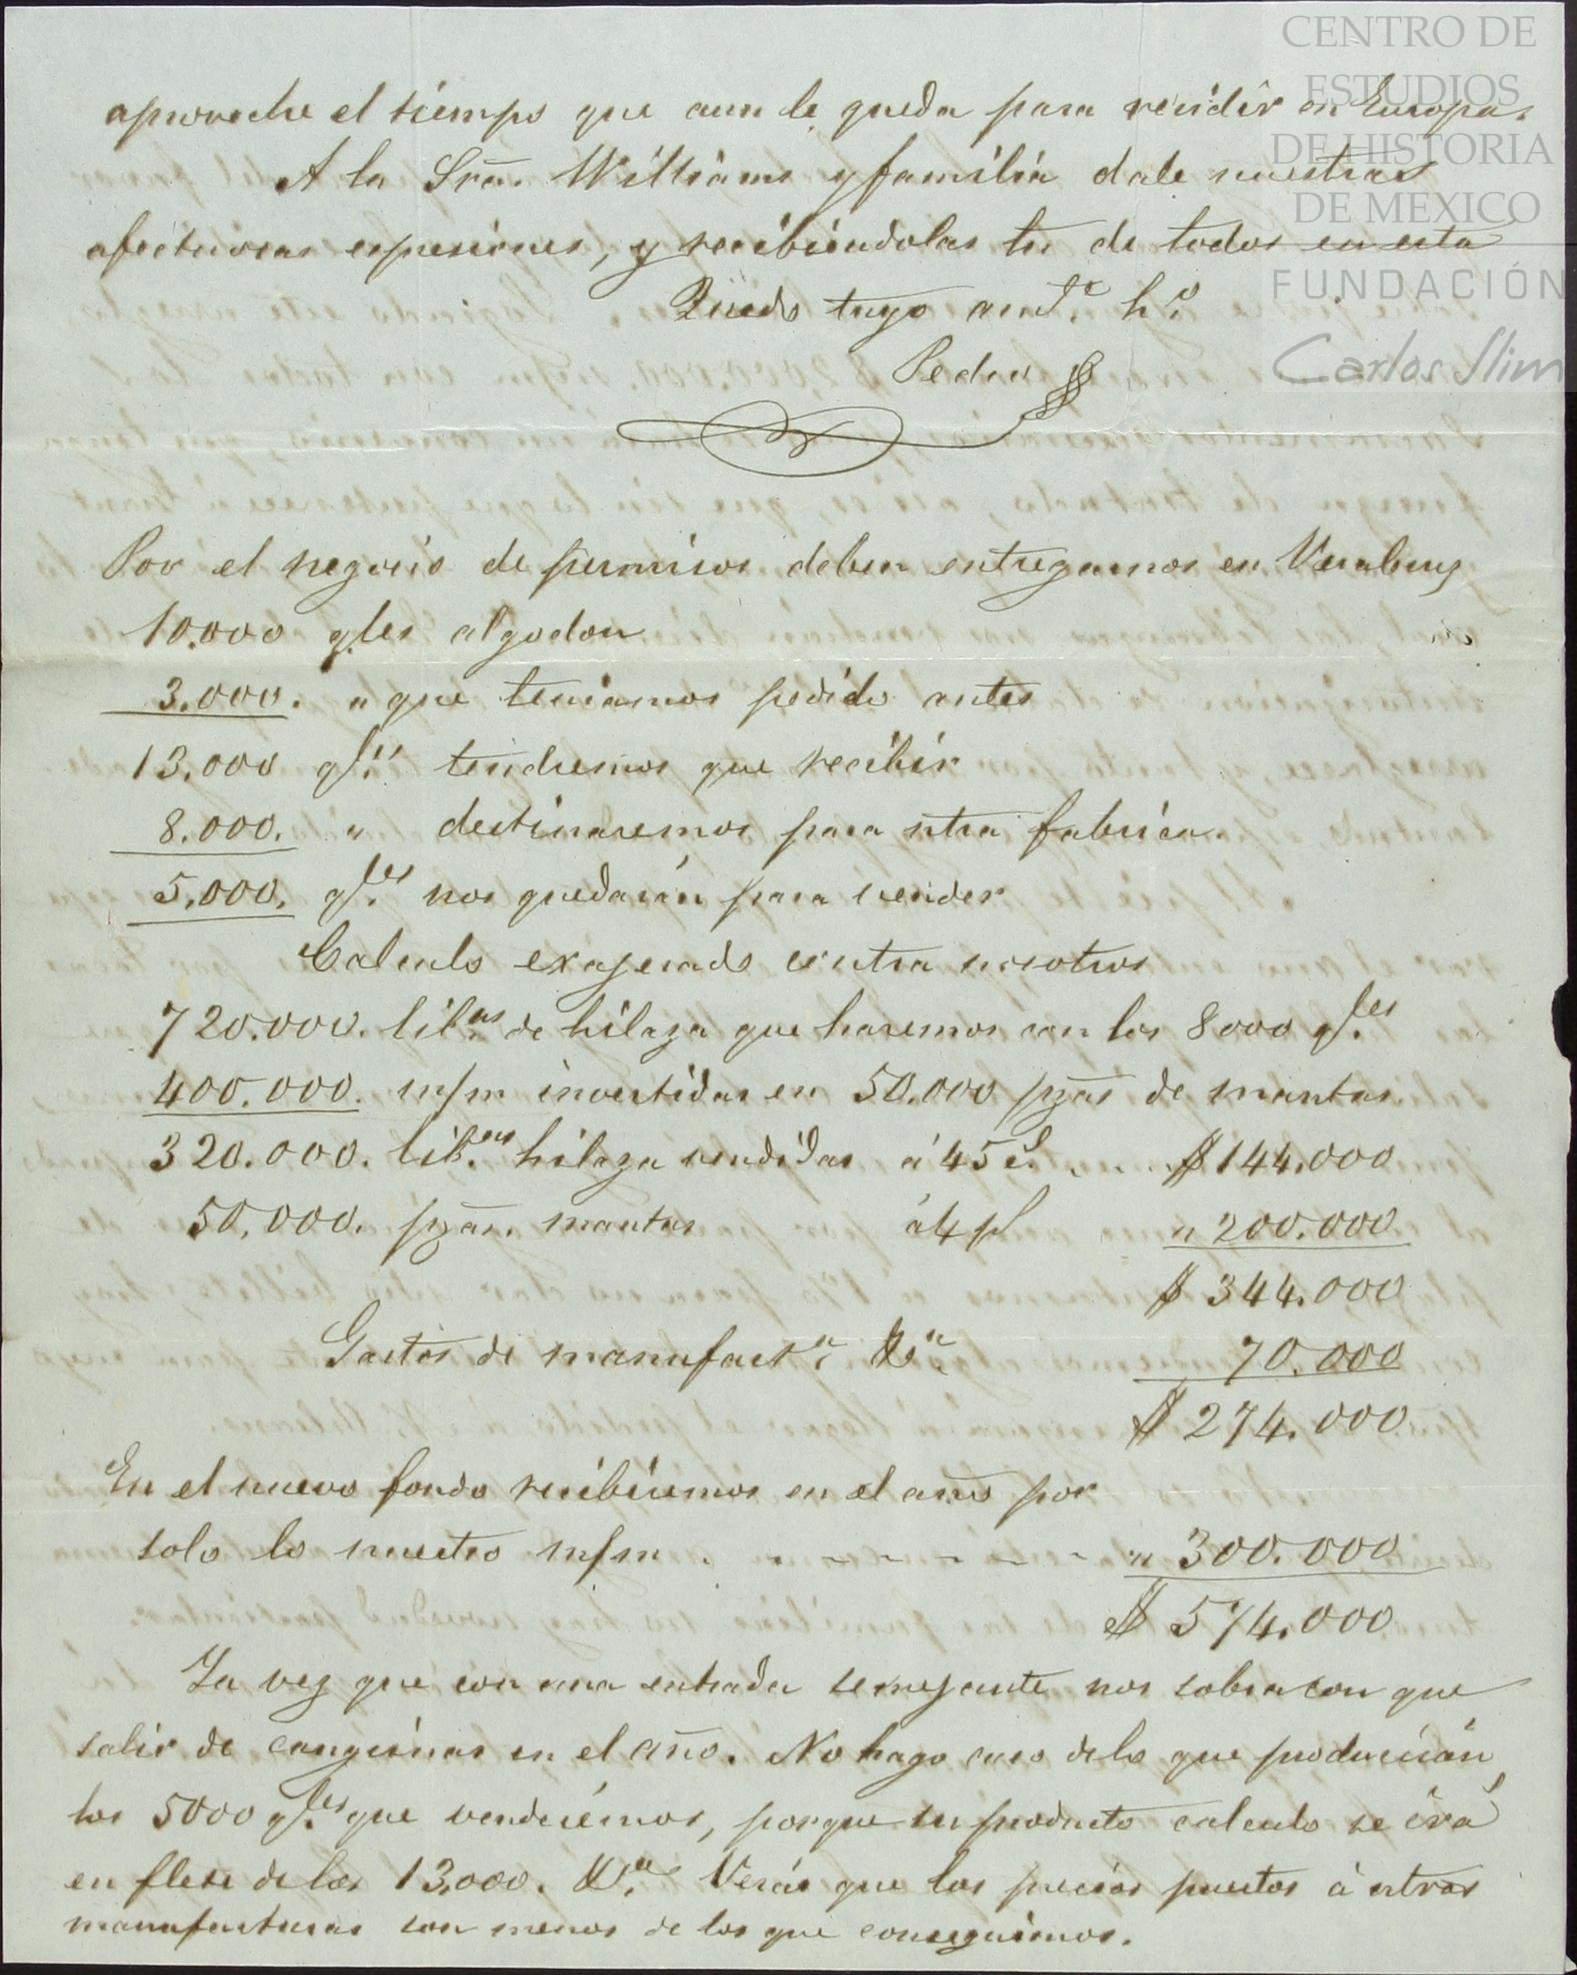 CENTRO DE
ESTUDIOS
DE HISTORIA
DE MEXICO
FUNDACIÓN
Carlos Slim
aproveche el tiempo que aun le queda para recidir en Europa.
A la Srã. Williams y familia dale nuestras
afectuosas espresiones, y recibiendolas tu de todos en esta
Quedo tuyo am.e h.o
Pedro
Por el negocio de permisos deben entregarnos en Veracruz
10.000 q.les algodon
3.000. " que teniamos pedido antes
13,000 q.les tendremos que recibir
8.000. " destinaremos para ntra fabrica.
5.000. q.les nos quedarán para vender
Calculo exajerado contra nosotros
720.000. lib.as de hilaza que haremos con los 8000 q.les
400.000. m/m invertidas en 50.000 pzãs de mantas.
320.000. lib.as hilaza vendidas á 45 c. . . $ 144.000
50.000. pzãs. mantas á 4 p " 200.000
$ 344.000
Gastos de manufact.a &.a 70.000
$ 274.000
En el nuevo fondo recibiremos en el año por
solo lo nuestro m/m . - - - - - - " 300.000
$ 574.000
Ya vez que con una entrada semejante nos sobra con que
salir de congojas en el año. No hago caso delo que producirán
los 5000 q.les que venderémos, porque su producto calculo se irá
en flete de los 13,000. &.a Verás que los precios puestos á ntras
manufacturas son menos de los que conseguimos.